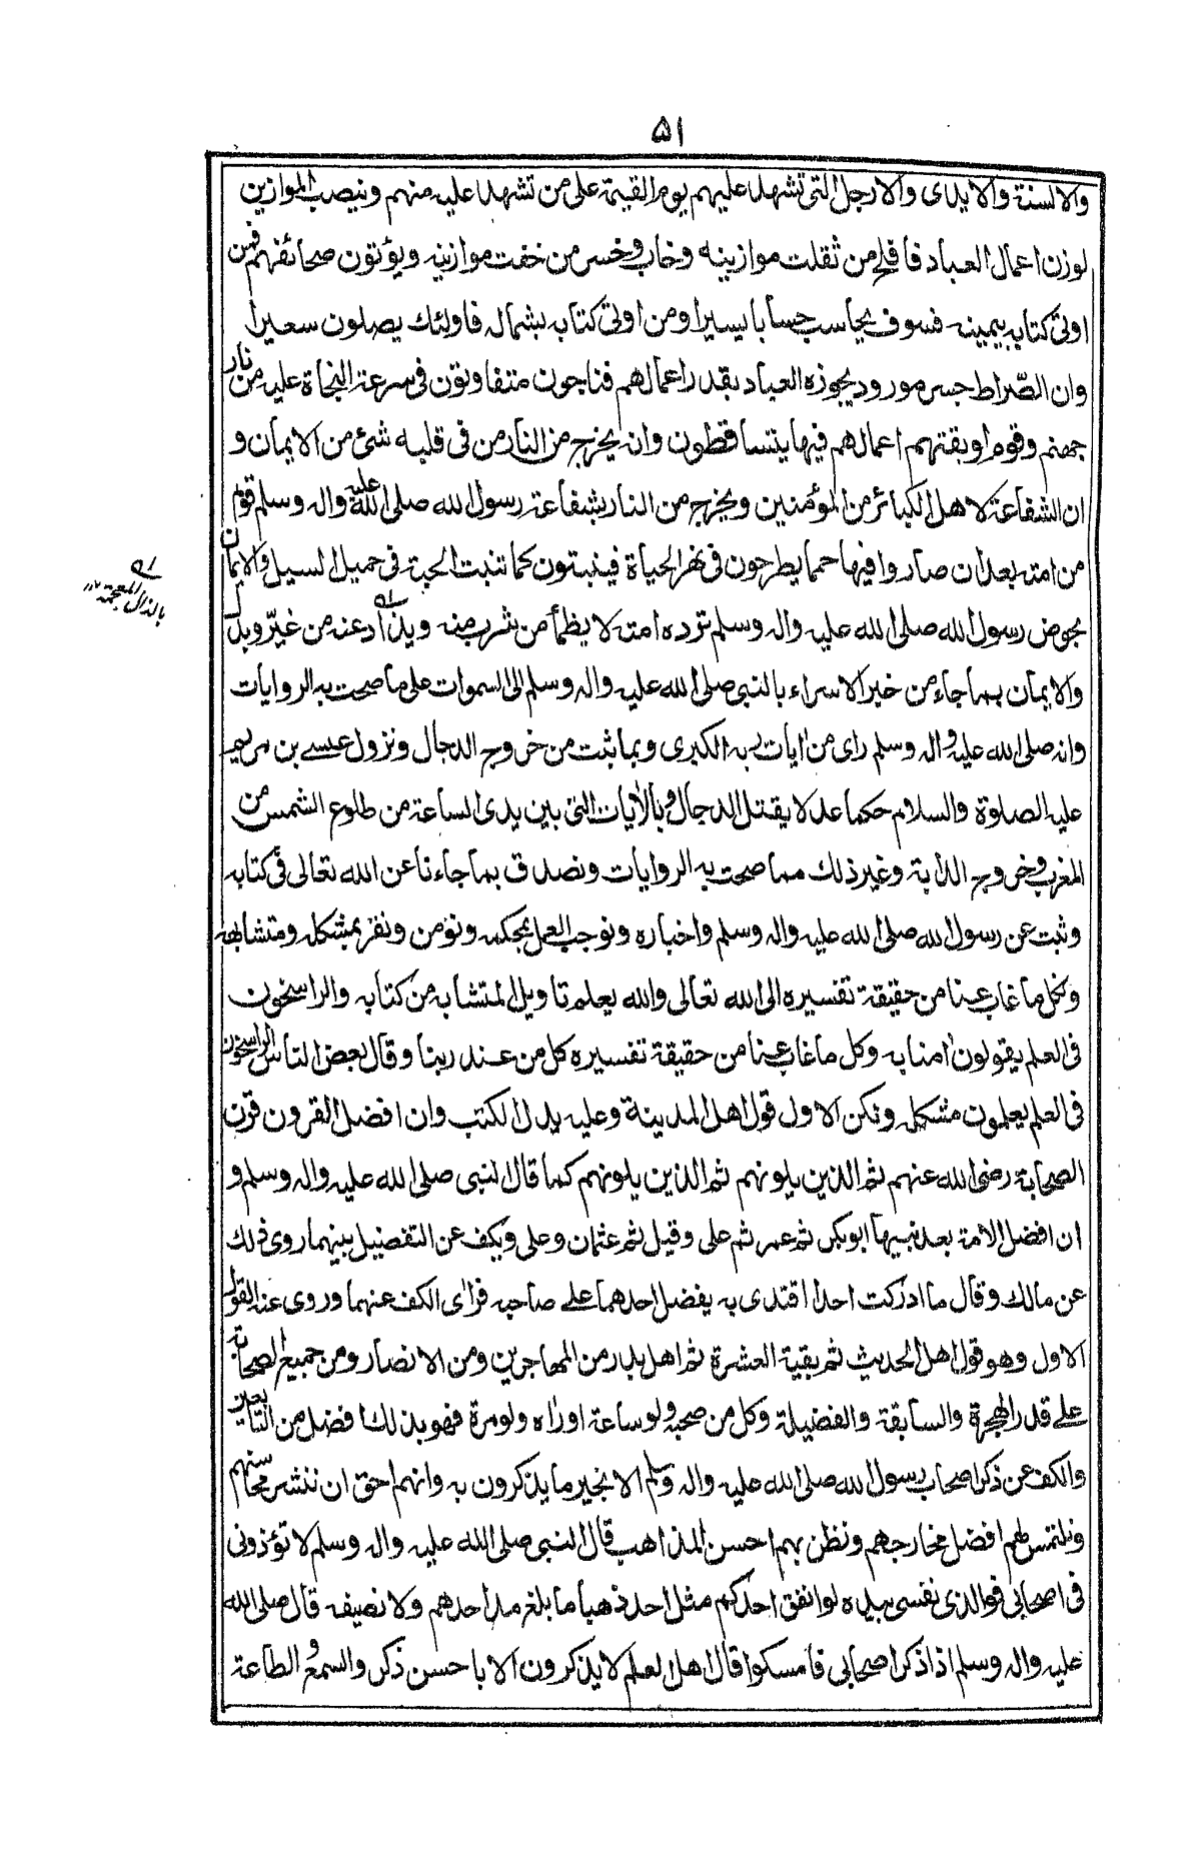 ۵۱
والالسنة والايدى والارجل التى تشهد عليهم يوم القيمة على من تشهد عليه منهم ونصب الموازين
لوزن اعمال العباد فافلح من ثقلت موازينه وخاب وخسر من خفت موازينه ويؤتون صحائفهم فمن
اوتى كتابه بيمينه فسوف يحاسب حسابا يسيرا ومن اوتى كتابه بشماله فاولئك يصلون سعيرا
وان الصّراط جسر مورود يجوزه العباد بقدر اعمالهم فناجون متفاوتون فى سرعة النجاة عليه من نار
جهنم وقوم اوبقتهم اعمالهم فيها يتساقطون وانه يخرج من النار من فى قلبه شئ من الايمان و
ان الشفاعة لاهل الكبائر من المؤمنين ويخرج من النار بشفاعة رسول الله صلى الله عليه واله وسلم قوم
من امته بعد ان صاروا فيها حمما يطرحون فى نهر الحياة فينبتون كما تنبت الحبة فى حميل السيل والايمان
بحوض رسول الله صلى الله عليه واله وسلم ترده امته لا يظمأ من شرب منه ويذاد عنه من غيّر وبدل
والايمان بما جاء من خبر الاسراء بالنبى صلى الله عليه واله وسلم الى السموات على ما صحت به الروايات
وانه صلى الله عليه واله وسلم راى من ايات ربه الكبرى وبما ثبت من خروج الدجال ونزول عيسے بن مريم
عليه الصلوة والسلام حكما عدلا يقتل الدجال وبالايات التى بين يدى الساعة من طلوع الشمس من
المغرب وخروج الدابة وغير ذلك مما صحت به الروايات ونصدق بما جاءنا عن الله تعالى فى كتابه
وثبت عن رسول الله صلى الله عليه واله وسلم واخباره ونوجب العمل بمحكمه ونؤمن ونقر بمشكله ومتشابهه
ونكل ما غاب عنا من حقيقة تفسيره الى الله تعالى والله يعلم تاويل المتشابه من كتابه والراسخون
فى العلم يقولون امنا به وكل ما غاب عنا من حقيقة تفسيره كل من عند ربنا وقال بعض الناس الراسخون
فى العلم يعلمون مشكله ونكن الاول قول اهل المدينة وعليه يدل الكتب وان افضل القرون قرن
الصحابة رضى الله عنهم ثم الذين يلونهم ثم الذين يلونهم كما قال النبى صلى الله عليه واله وسلم و
ان افضل الامة بعد نبيها ابوبكر ثم عمر ثم على وقيل ثم عثمان وعلى ويكف عن التفضيل بينهما روى ذلك
عن مالك وقال ما ادركت احدا اقتدى به يفضل احدهما علے صاحبه فراى الكف عنهما وروى عنه القول
الاول وهو قول اهل الحديث ثم بقية العشرة ثم اهل بدر من المهاجرين ومن الانصار ومن جميع الصحابة
علے قدر الهجرة والسابقة والفضيلة وكل من صحبه ولو ساعة او راه ولو مرة فهو بذلك افضل من التابعين
والكف عن ذكر اصحاب رسول الله صلى الله عليه واله وسلم الا بخير ما يذكرون به وانهم احق ان ننشر محاسنهم
ونلتمس لهم افضل مخارجهم ونظن بهم احسن المذاهب قال النبى صلى الله عليه واله وسلم لا تؤذونى
فى اصحابى فوالذى نفسى بيده لو انفق احدكم مثل احد ذهبا ما بلغ مد احدهم ولا نصيفه قال صلى الله
عليه واله وسلم اذا ذكر اصحابى فامسكوا قال اهل العلم لا يذكرون الا باحسن ذكر والسمع والطاعة
بالذال المعجمة ۱۲